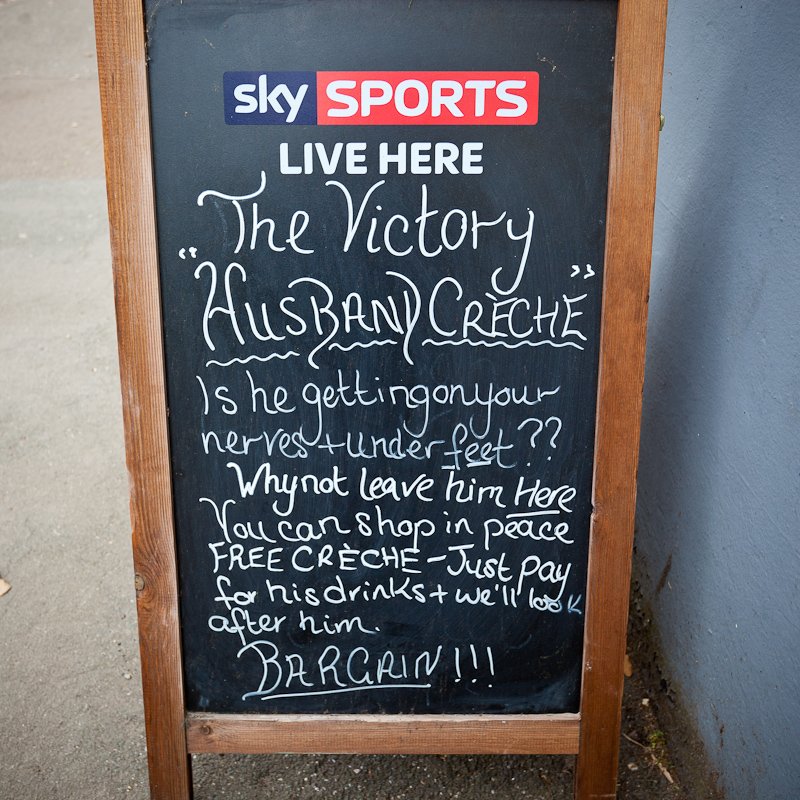 sky SPORTS
LIVE HERE
The Victory
"HUSBAND CRÈCHE"
Is he getting on your
nerves + under feet ??
Why not leave him Here
You can shop in peace
FREE CRÈCHE - Just pay
for his drinks + we'll look
after him.
BARGAIN!!!